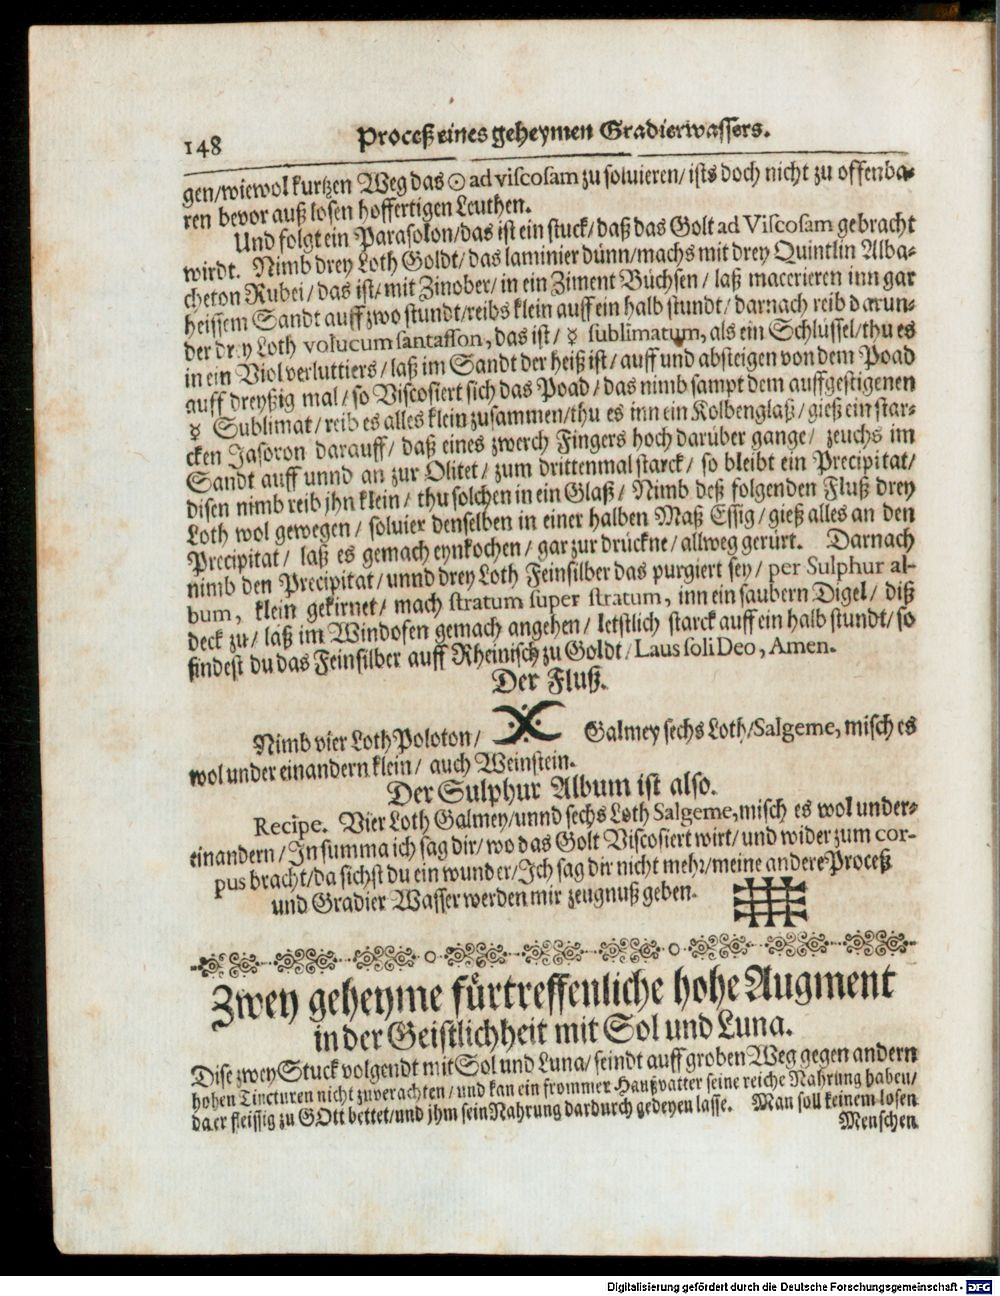 148 Proceß eines geheymen Gradierwassers.
gen/wiewol kurtzen Weg das ☉ ad viscosam zu soluieren/ ists doch nicht zu offenba-
ren bevor auß losen hoffertigen Leuthen.
Und folgt ein Parasolon/das ist ein stuck/daß das Golt ad Viscosam gebracht
wirdt. Nimb drey Loth Goldt/das laminier dünn/machs mit drey Quintlin Alba-
cheton Rubei/das ist/mit Zinober/in ein Ziment Büchsen/ laß macerieren inn gar
heissem Sandt auff zwo stundt/reibs klein auff ein halb stundt/darnach reib darun-
der drey Loth volucum santasson, das ist/ ☿ sublimatum, als ein Schlüssel/thu es
in ein Viol verluttiers/ laß im Sandt der heiß ist/ auff und absteigen von dem Poad
auff dreyßig mal/so Viscosiert sich das Poad/das nimb sampt dem auffgestigenen
☿ Sublimat/reib es alles klein zusammen/thu es inn ein Kolbenglaß/gieß ein star-
cken Jasoron darauff/ daß eines zwerch Fingers hoch darüber gange/ zeuchs im
Sandt auff unnd an zur Olitet/ zum drittenmal starck/ so bleibt ein Precipitat/
disen nimb reib jhn klein/ thu solchen in ein Glaß/ Nimb deß folgenden Fluß drey
Loth wol gewegen/ soluier denselben in einer halben Maß Essig/gieß alles an den
Precipitat/ laß es gemach eynkochen/gar zur drückne/allweg gerürt. Darnach
nimb den Precipitat/unnd drey Loth Feinsilber das purgiert sey/ per Sulphur al-
bum, klein gekirnet/ mach stratum super stratum, inn ein saubern Digel/ diß
deck zu/ laß im Windofen gemach angehen/ letstlich starck auff ein halb stundt/so
findest du das Feinsilber auff Rheinisch zu Goldt/Laus soli Deo, Amen.
Der Fluß.
Nimb vier Loth Poloton/ Galmey sechs Loth/Salgeme, misch es
wol under einandern klein/ auch Weinstein.
Der Sulphur Album ist also.
Recipe. Vier Loth Galmey/unnd sechs Loth Salgeme, misch es wol under-
einandern/In summa ich sag dir/wo das Golt Viscosiert wirt/und wider zum cor-
pus bracht/da sichst du ein wunder/Ich sag dir nicht mehr/meine andere Proceß
und Gradier Wasser werden mir zeugnuß geben.
Zwey geheyme fürtreffenliche hohe Augment
in der Geistlichheit mit Sol und Luna.
Dise zwey Stuck volgendt mit Sol und Luna/seindt auff groben Weg gegen andern
hohen Tincturen nicht zuverachten/und kan ein frommer Haußvatter seine reiche Nahrung haben/
da er fleissig zu GOtt bettet/und jhm sein Nahrung dardurch gedeyen lasse. Man soll keinem losen
Menschen
Digitalisierung gefördert durch die Deutsche Forschungsgemeinschaft - DFG